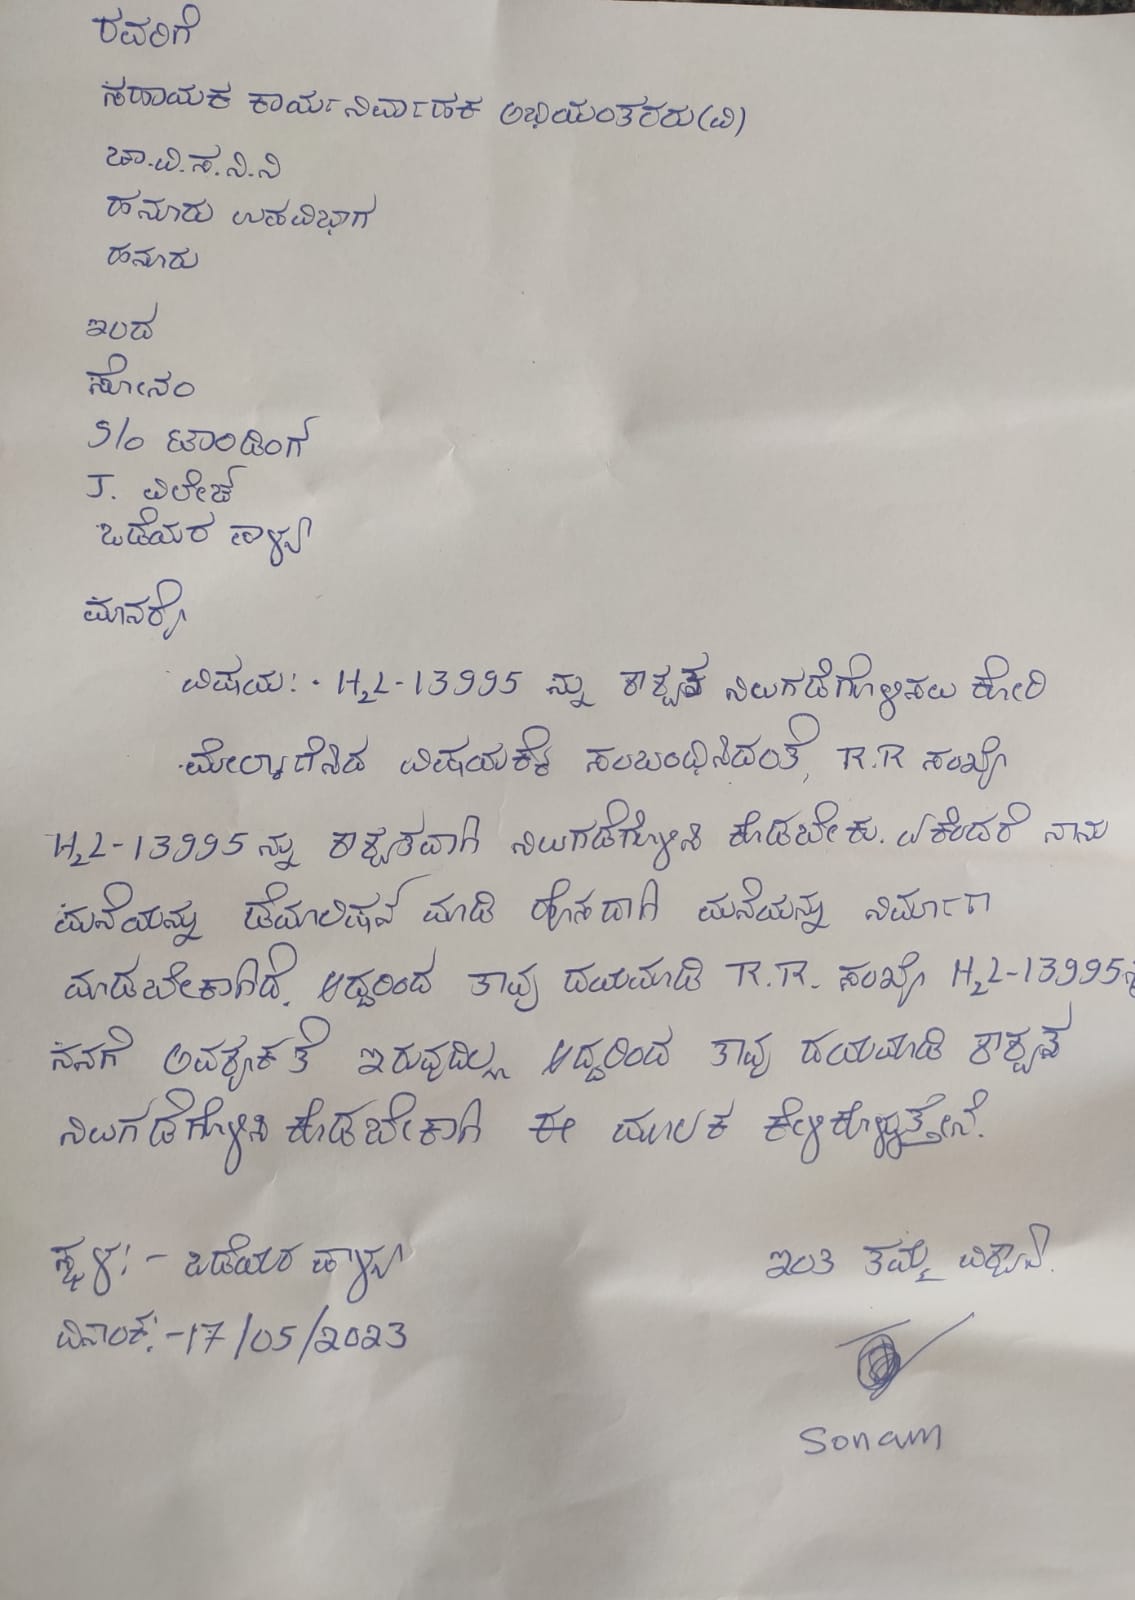 ರವರಿಗೆ
ಸಹಾಯಕ ಕಾರ್ಯನಿರ್ವಾಹಕ ಅಭಿಯಂತರರು(ವಿ)
ಚಾ.ವಿ.ಸ.ನಿ.ನಿ
ಹನೂರು ಉಪವಿಭಾಗ
ಹನೂರು
ಇಂದ
ಸೋನಂ
S/o ಟಾಂಡಿಂಗ
J. ವಿಲೇಜ್
ಒಡೆಯರ ಪಾಳ್ಯ
ಮಾನರ್ಯೆ
ವಿಷಯ: - H₂L-13995 ನ್ನು ಶಾಶ್ವತ ನಿಲುಗಡೆಗೊಳಿಸಲು ಕೋರಿ
ಮೇಲ್ಕಾಣಿಸಿದ ವಿಷಯಕ್ಕೆ ಸಂಬಂಧಿಸಿದಂತೆ, R.R ಸಂಖ್ಯೆ
H₂L-13995 ನ್ನು ಶಾಶ್ವತವಾಗಿ ನಿಲುಗಡೆಗೊಳಿಸಿ ಕೊಡಬೇಕು. ಏಕೆಂದರೆ ನಾನು
ಮನೆಯನ್ನು ಡೆಮಾಲಿಷನ್ ಮಾಡಿ ಹೊಸದಾಗಿ ಮನೆಯನ್ನು ನಿರ್ಮಾಣ
ಮಾಡಬೇಕಾಗಿದೆ. ಆದ್ದರಿಂದ ತಾವು ದಯಮಾಡಿ R.R. ಸಂಖ್ಯೆ H₂L-13995ನ್ನು
ನನಗೆ ಅವಶ್ಯಕತೆ ಇರುವುದಿಲ್ಲ ಆದ್ದರಿಂದ ತಾವು ದಯಮಾಡಿ ಶಾಶ್ವತ
ನಿಲುಗಡೆಗೊಳಿಸಿ ಕೊಡಬೇಕಾಗಿ ಈ ಮೂಲಕ ಕೇಳಿಕೊಳ್ಳುತ್ತೇನೆ.
ಸ್ಥಳ: - ಒಡೆಯರ ಪಾಳ್ಯ
ಇಂತಿ ತಮ್ಮ ವಿಶ್ವಾಸಿ.
ದಿನಾಂಕ: -17/05/2023
Sonam